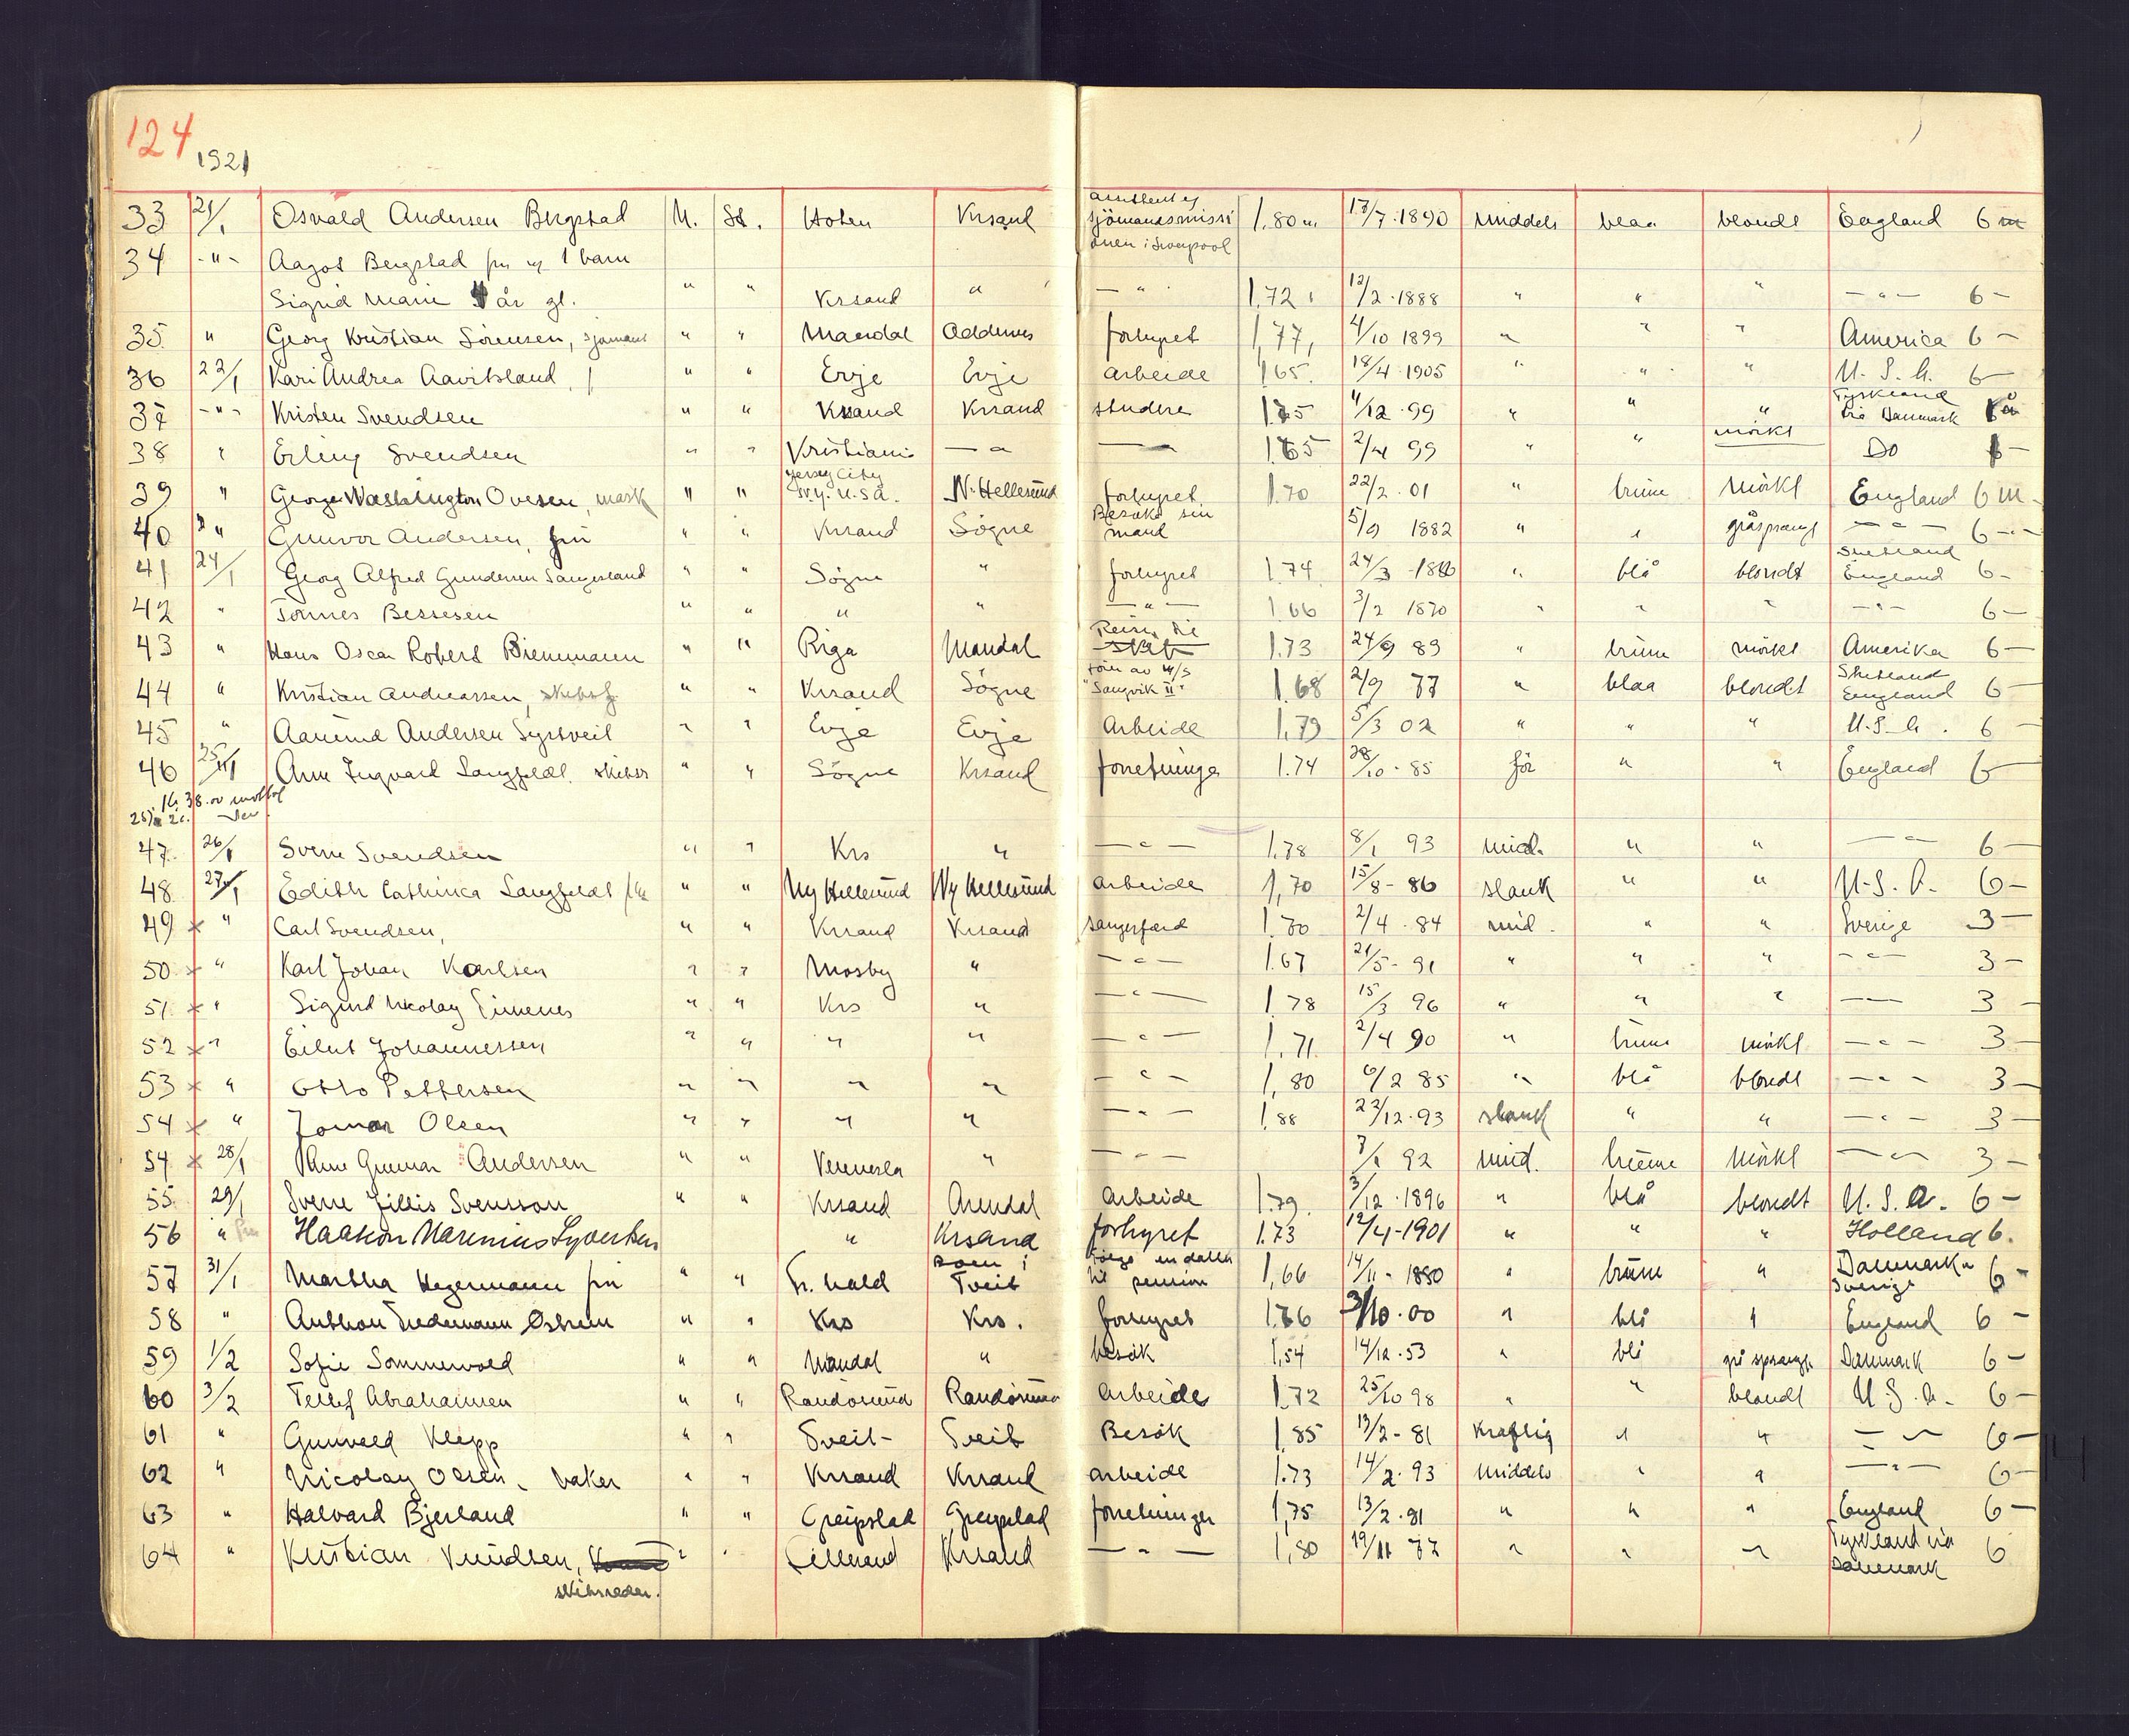 124
1921
33 21/1 Osvald Andersen Bergstad U. St. Holen Krsand assistent ej sjömandsmissionen i Liverpool 1.80 m 17/7.1890 middels blaa blondt England 6 m
34 -"- Aagot Bergstad fru og 1 barn
Sigrid Marie 4 år gl. " " Krsand " — " — 1.72 12/2.1888 " " " — " — 6 —
35 " Georg Kristian Sörensen, sjömand " " Mandal Oddernes forhyret 1,77, 4/10 1899 " " " America 6 —
36 22/1 Kari Andrea Aavitsland, f " " Evje Evje arbeide 1,65. 18/4.1905 " " " U.S.A. 6 —
37 -"- Kristen Svendsen " " Krsand Krsand studere 1.75 4/12.99 " " " Tyskland via Danmark 1 år
38 " Erling Svendsen " " Kristiania — " — 1.65 2/4 99 " " mörkt Do 1 —
39 " George Washington Ovesen, mask " " Jersey City N.Y. U.S.A. N. Hellesund forhyret 1.70 22/2.01 " brune mörkt England 6 m
40 " Gunvor Andersen, fru " " Krsand Sögne Besöke sin mand 5/9 1882 " " gråsprengt — " — 6 —
41 24/1 Georg Alfred Gundersen Langeland " " Sögne " forhyret 1.74 24/3 - 1886 " blå blondt Shetland England 6 —
42 " Tönnes Bessesen " " " " — " — 1.66 3/2 1870 " " " — " — 6 —
43 " Hans Oscar Robert Bienmann " " Riga Mandal Reise til 1.73 24/9 89 " brune mörkt Amerika 6 —
44 " Kristian Andreassen, skibsf. " " Krsand Sögne förer av M/S "Sangvik II" 1.68 2/9 77 " blaa blondt Shetland England 6 —
45 " Aanund Andersen Syrtveit " " Evje Evje Arbeide 1,79 5/3 02 " " " U.S.A. 6 —
46 25/1 Arne Ingvard Langfeldt. skibsr " " Sögne Krsand forretninger 1.74 28/10-85 för " " England 6 —
Kr. 38.00
47 26/1 Sverre Svendsen " " Krs " — " — 1.78 8/1 93 mid. " " — " — 6 —
48 27/1 Edith Cathinca Langfeldt frk " " Ny Hellesund Ny Hellesund arbeide 1,70 15/8-86 slank " " U.S.A. 6 —
49 x " Carl Svendsen, " " Krsand Krsand sangerfærd 1.70 2/4.84 mid. " " Sverige 3 —
50 x " Karl Johan Karlsen " " Mosby " — " — 1.67 21/5-91 " " " — " — 3 —
51 x " Sigurd Nicolay Simenes " " Krs " — " — 1.78 15/3 96 " " " — " — 3 —
52 x " Eilert Johannessen " " " " — " — 1.71 2/4 90 " brune mörkt — " — 3 —
53 x " Otto Pettersen " " " " — " — 1,80 6/2 85 " blå blondt — " — 3 —
54 x " Jomar Olsen " " " " — " — 1.88 22/12.93 slank " " — " — 3 —
54 x 28/1 Arne Gunnar Andersen " " Vennesla " — " — 7/1 92 mid. brune mörkt — " — 3 —
55 29/1 Sverre Jillis Svensson " " Krsand Arendal Arbeide 1.79. 3/12.1896 " blå blondt U.S.A. 6 —
56 " Haakon Marenius Syvertsen " Krsand forhyret 1.73 12/4-1901 " " " Holland 6.
57 31/1 Martha Hegermann fru " " Fr.hald Boen i Tveit følge en datter til pension 1,66 14/11-1880 " brune " Danmark & Sverige 6 —
58 " Anthon Tiedemann Östrem " " Krs Krs. forhyret 1.76 3/10.00 " blå " England 6 —
59 1/2 Sofie Sommervold " " Mandal " besök 1,54 14/12.53 " blå grå sprengt Danmark 6 —
60 3/2 Tellef Abrahamsen " " Randösund Randösund Arbeide 1.72 25/10 98 " " blondt U.S.A. 6 —
61 " Gunvald Klepp " " Tveit - Tveit Besök 1,85 13/2-81 kraftig " " — " — 6 —
62 " Nicolay Olsen, baker " " Krsand Krsand arbeide 1.73 14/2.93 middels " " — " — 6 —
63 " Halvard Bjerland " " Greipstad Greipstad forretninger 1,75 13/2.91 " " " England 6 —
64 " Kristian Knudsen, " " Lillesand Krsand — " — 1,80 19/11 77 " " " Tyskland via Danmark 6
skibsreder.